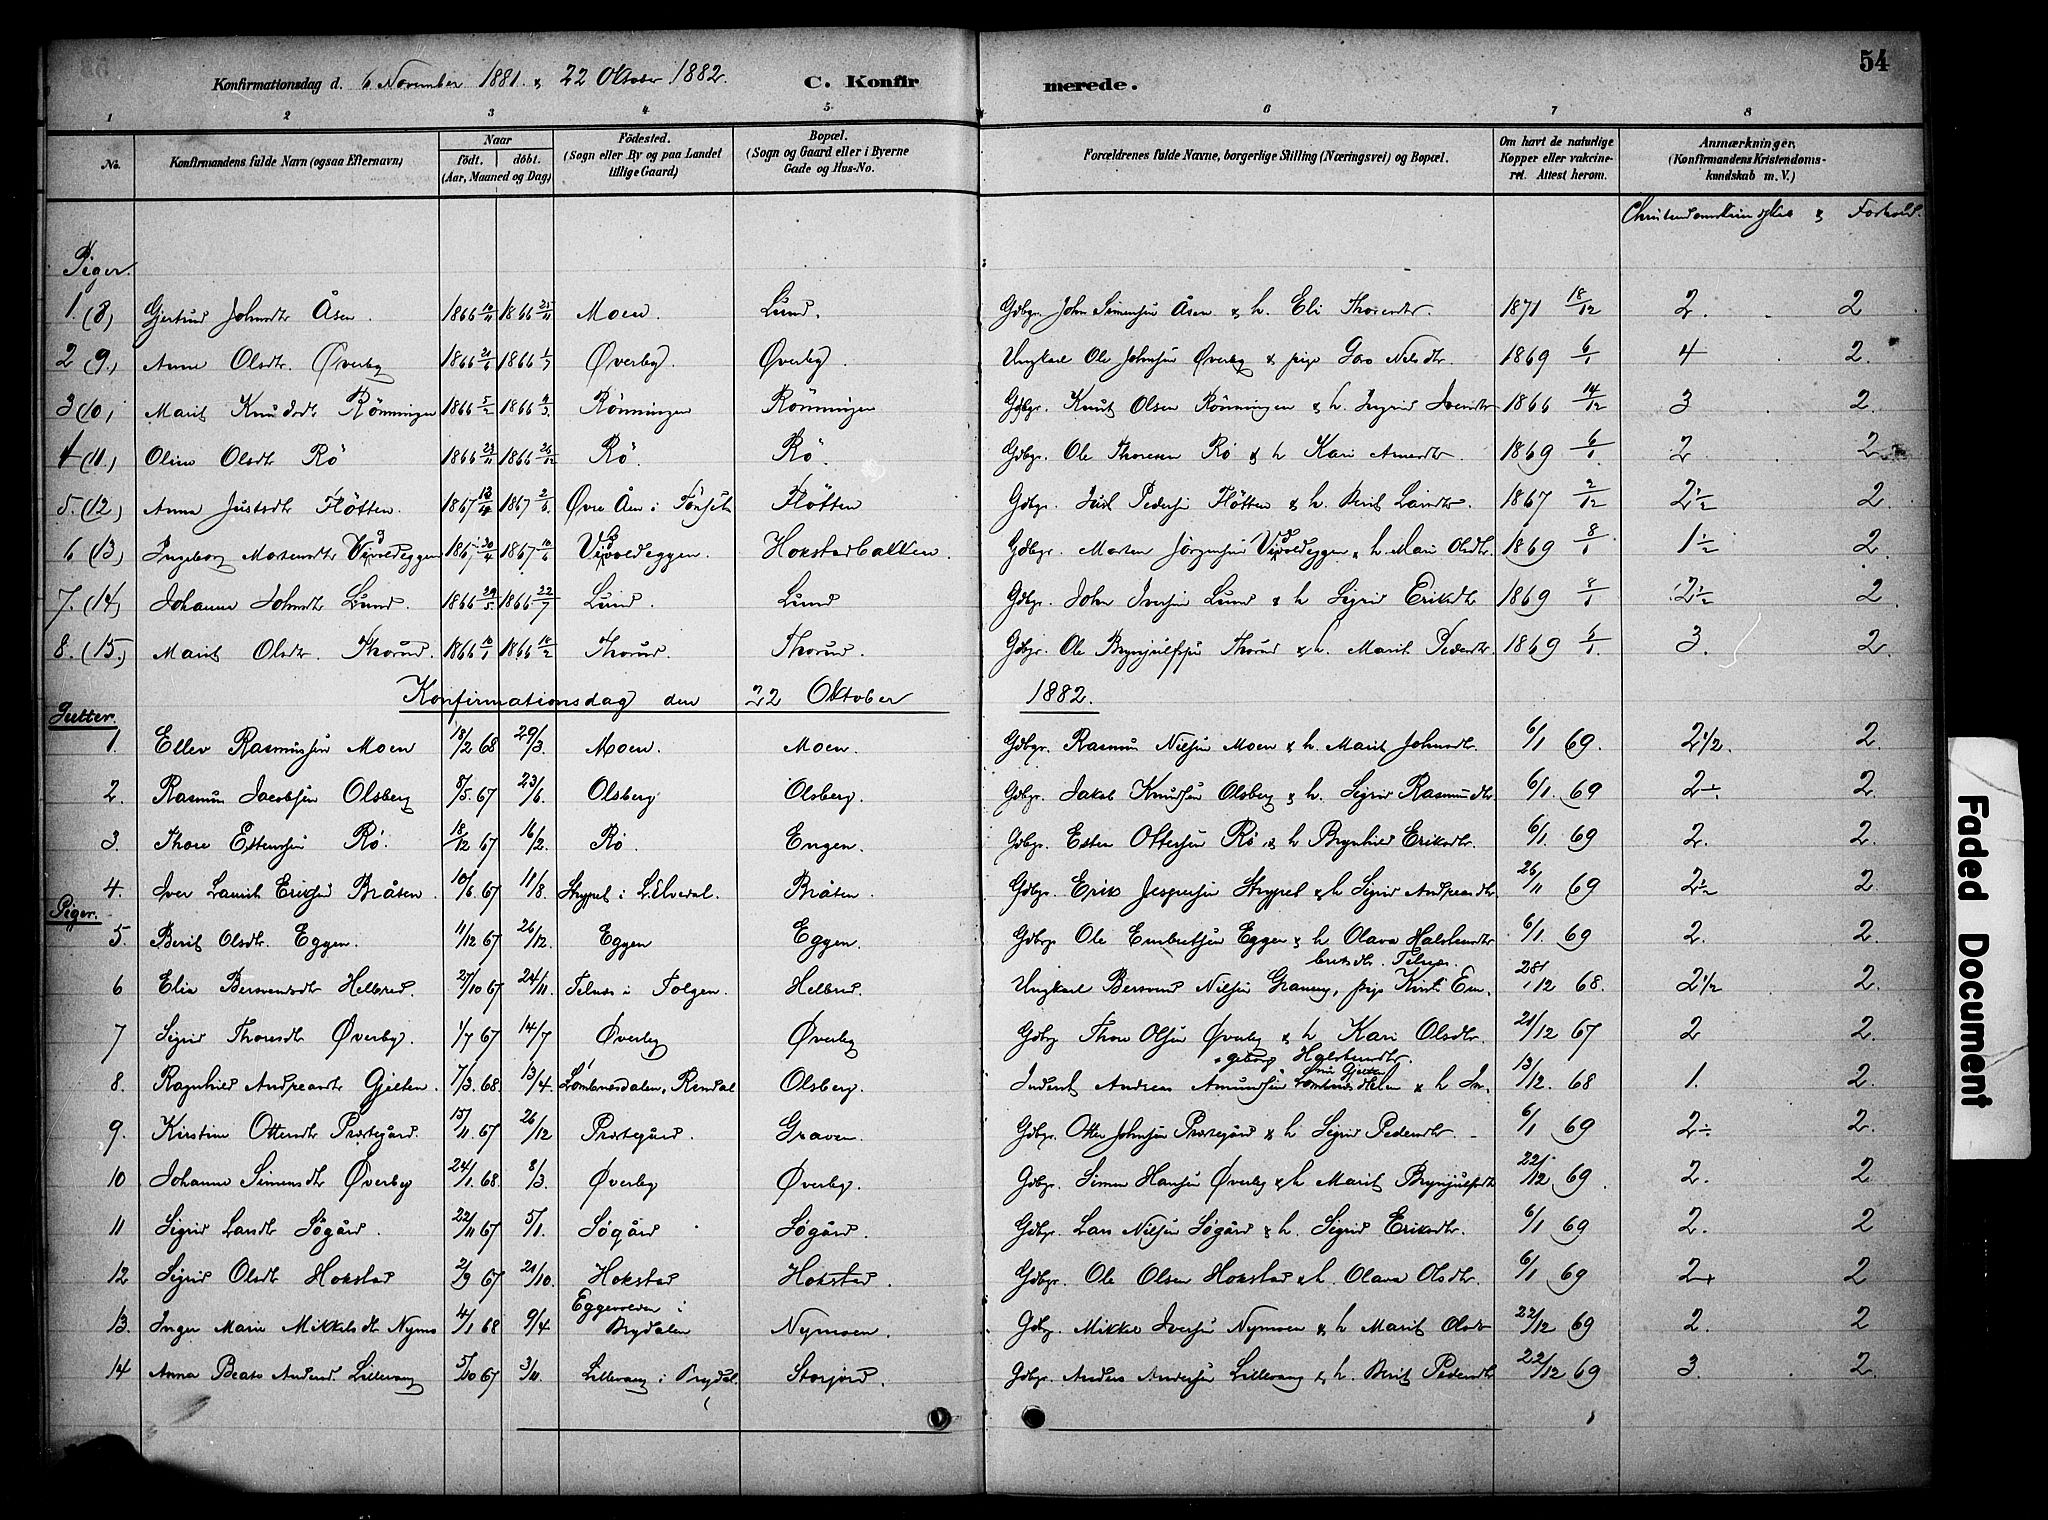 54
Konfirmationsdag d. 6 November 1881 & 22 Oktober 1882. C. Konfirmerede.
1 2 3 4 5. 6 7 8
No. Konfirmandens fulde Navn (ogsaa Efternavn) Naar født. døbt. (Aar, Maaned og Dag) Fødested. (Sogn eller By og paa Landet tillige Gaard) Bopæl. (Sogn og Gaard eller i Byerne Gade og Hus-No. Forældrenes fulde Navne, borgerlige Stilling (Næringsvei) og Bopæl. Om havt de naturlige Kopper eller vakcineret. Attest herom. Anmærkninger. (Konfirmandens Kristendomskundskab m. V.)
Christendomskundskab & Forhold.
Piger.
1. (8) Gjertrud Johnsdtr Åsen. 1866 10/11 1866 25/11 Moen. Lund. Gdbgr. John Simensen Åsen & h. Eli Thoresdtr. 1871 18/12 2. 2
2 (9.) Anne Olsdtr. Øverby 1866 21/6 1866 1/7 Øverby. Øverby. Ungkarl Ole Johnsen Øverby & pige Goro Nilsdtr 1869 6/1 4 2.
3 (10, Marit Knudsdtr Rönningen 1866 5/2 1866 4/3 Rönningen Rönningen Gdbgr. Knut Olsen Rönningen & h. Ingrid Svendtr 1866 14/12 3 2.
4 (11.) Oline Olsdtr Rö 1866 23/11 1866 26/12 Rö. Rö. Gdbgr. Ole Thoresen Rö & h Kari Arnesdtr 1869 6/1 2 2
5. (12) Anna Justsdtr Flötten. 1867 13/4 1867 2/6 Øvre Åen i Tönset Flötten Gdbgr. Just Pedersen Flötten & h. Berit Larsdtr. 1867 2/12 2½ 2.
6 (13) Ingeborg Mortensdtr Vivoldeggen 1867 30/4 1867 10/6 Vivoldeggen. Hokstadbakken. Gdbgr. Morten Jörgensen Vivoldeggen & h. Mari Olsdtr. 1869 8/1 1½ 2.
7. (14) Johanne Johnsdtr Lund. 1866 29/5 1866 22/7 Lund. Lund Gdbgr. John Iversen Lund & h Sigrid Eriksdtr 1869 8/1 2½ 2
8. (15.) Marit Olsdtr. Thorud. 1866 10/1 1866 18/2 Thorud. Thorud. Gdbgr. Ole Brynjulfsen Thorud & h. Marit Pedersdtr. 1869 6/1. 3. 2.
Konfirmationsdag den 22 Oktober 1882.
Gutter.
1. Ellev Rasmussen Moen 18/2 68 29/3. Moen. Moen. Gdbgr. Rasmus Nilsen Moen & h. Marit Johnsdtr. 6/1 69. 2½. 2.
2. Rasmus Jacobsen Olsberg 8/5. 67 23/6. Olsberg Olsberg. Gdbgr. Jakob Knudsen Olsberg & h. Sigrid Rasmusdtr. 6/1. 69 2÷. 2.
3. Thore Estensen Rö. 18/12 67 16/2. Rö. Engen. Gdbgr. Esten Ottersen Rö. & h Brynhild Eriksdtr. 6/1. 69 2. 2.
4. Iver Laurits Eriksen Bråten. 10/6 67 11/8. Strypet i Lilvedal. Bråten. Gdbgr. Erik Jespersen Strypet & h Sigrid Andreasdtr 26/11 69 2½ 2
Piger.
5. Berit Olsdtr. Eggen. 11/12 67 26/12. Eggen Eggen. Gdbgr Ole Embretsen Eggen & h Olava Halstensdtr 6/1. 69 2. 2.
6 Elia Bersvendsdtr Helbred. 27/10 67 24/11. Telnæs i Tolgen. Helbred. Ungkarl Bersvend Nilsen Graneng, pige Kirsti Em- 28/12 68. 2½ 2.
bretsdtr. Telnæs.
7 Sigrid Thoresdtr Øverby. 1/7 67 14/7 Øverby Øverby Gdbgr Thore Olsen Øverby & h Kari Olsdtr. 21/12 67 2 2.
8. Ragnhild Andreasdtr Gjelten. 7/3. 68 13/4. Lombnæsdalen, Rendal Olsberg. Inderst Andreas Amundsen Lombnæsdalen & h In- 13/12. 68 1. 2.
geborg Halstensdtr.
9. Kirstine Ottersdtr Præstegård. 15/11. 67 26/12 Præstegård. Graven. Gdbgr. Otter Johnsen Præstegård & h. Sigrid Pedersdtr. 6/1 69 2÷ 2.
10 Johanne Simensdtr Øverby 24/1. 68 8/3. Øverby Øverby. Gdbgr. Simen Hansen Øverby & h Marit Brynjulfsdtr 22/12 69. 2. 2
11 Sigrid Larsdtr Søgård. 22/11 67 5/1. Søgård Søgård. Gdbgr. Lars Nilsen Søgård & h. Sigrid Eriksdtr. 6/1 69 2. 2
12 Sigrid Olsdtr Hokstad 2/9 67 21/10. Hokstad Hokstad. Gdbgr. Ole Olsen Hokstad & h. Olava Olsdtr. 6/1 69 2+ 2
13. Inger Marie Mikkelsdtr Nymo 4/1 68 9/4 Eggevolden i Brydalen Nymoen. Gdbg. Mikkel Iversen Nymoen & h Marit Olsdtr 22/12 69 2. 2
14 Anna Beate Andersd Lillevang 5/10 67 3/11. Lillevang i Brydal. Storjord. Gdbgr. Anders Andersen Lillevang & h. Berit Pedersdtr 22/12 69 3. 2.
Faded Document